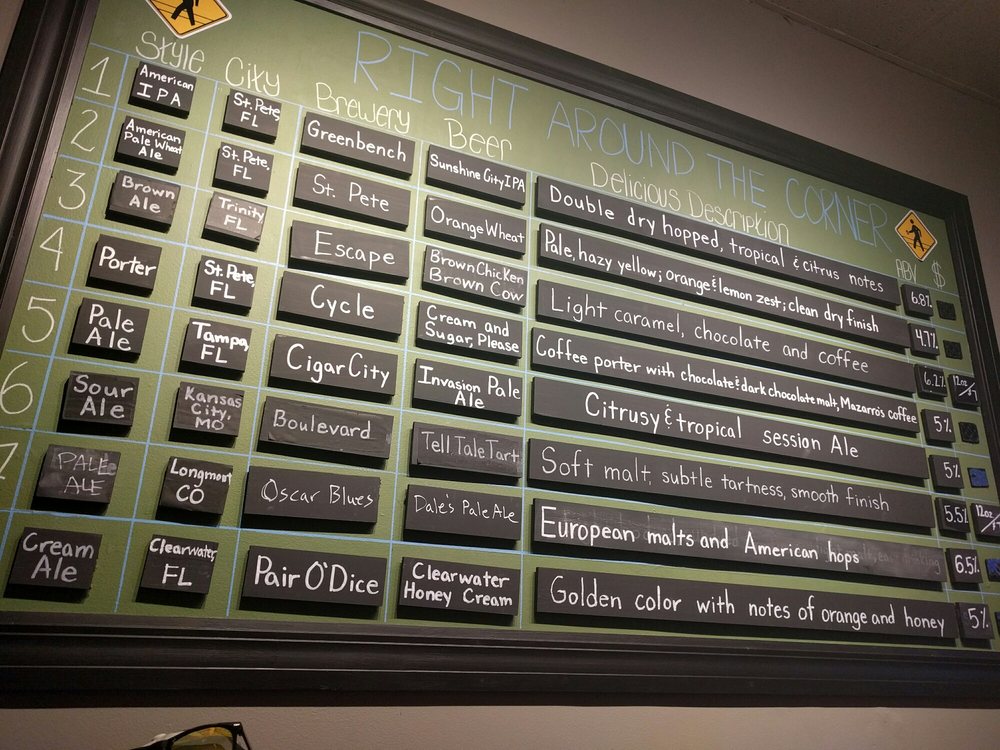 RIGHT AROUND THE CORNER
Style City Brewery Beer Delicious Description ABV $
1 American IPA St. Pete, FL Greenbench Sunshine City IPA Double dry hopped, tropical & citrus notes 6.8%
2 American Pale Wheat Ale St. Pete, FL St. Pete Orange Wheat Pale, hazy yellow; orange & lemon zest; clean dry finish 4.7%
3 Brown Ale Trinity, FL Escape Brown Chicken Brown Cow Light caramel, chocolate and coffee 6.2% 12oz
4 Porter St. Pete, FL Cycle Cream and Sugar, Please Coffee porter with chocolate & dark chocolate malt, Mazarro's coffee 5%
5 Pale Ale Tampa, FL Cigar City Invasion Pale Ale Citrusy & tropical session Ale 5%
6 Sour Ale Kansas City, MO Boulevard Tell Tale Tart Soft malt, subtle tartness, smooth finish 5.5% 12oz
7 PALE ALE Longmont CO Oscar Blues Dale's Pale Ale European malts and American hops 6.5%
Cream Ale Clearwater, FL Pair O'Dice Clearwater Honey Cream Golden color with notes of orange and honey 5%